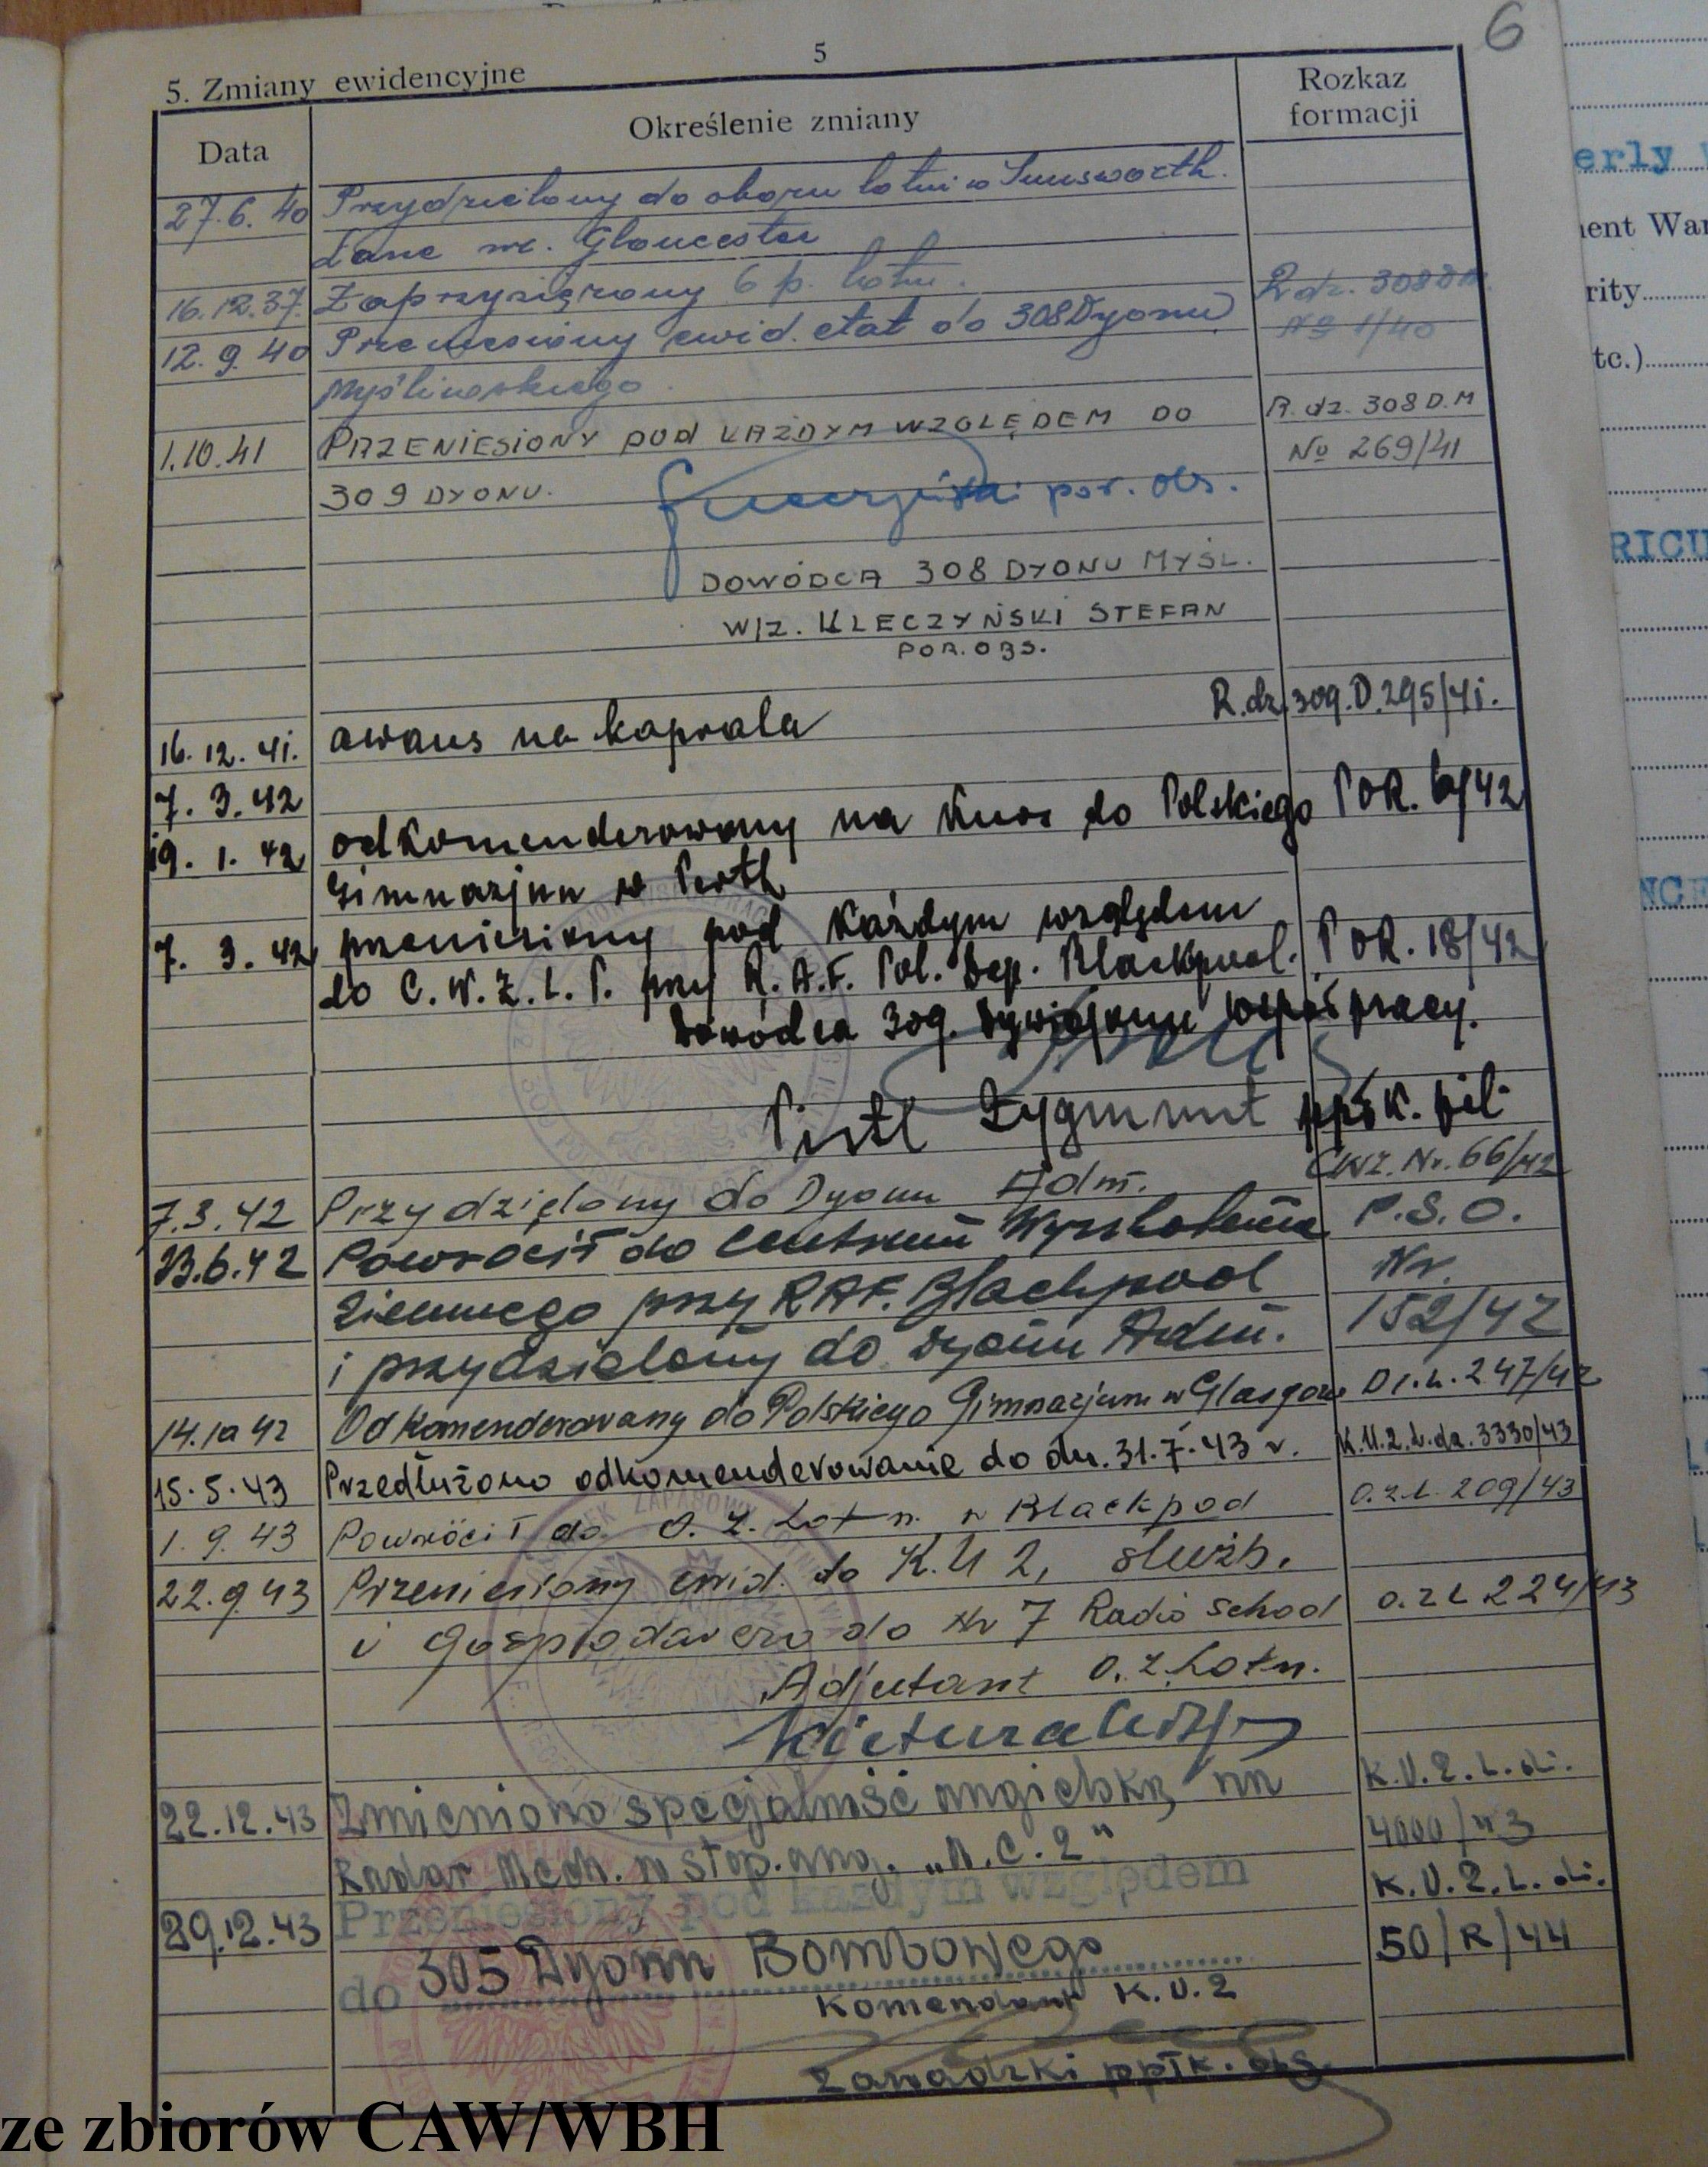 6
5
5. Zmiany ewidencyjne
Data
Określenie zmiany
Rozkaz
formacji
27.6.40 Przydzielony do obozu lotni w Innsworth
Lane nr. Gloucester
16.12.37. Zaprzysiężony 6 p. lotn. R.dz. 308 D.M.
12.9.40 Przeniesiony ewid. etat do 308 Dyonu No 1/40
Myśliwskiego.
1.10.41 PRZENIESIONY POD KAŻDYM WZGLĘDEM DO R.dz. 308 D.M
309 DYONU. No 269/41
por. obs.
DOWÓDCA 308 DYONU MYŚL.
W/Z. KLECZYŃSKI STEFAN
POR. OBS.
16.12.41. awans na kaprala R.dz. 309.D.295/41.
7.3.42
19.1.42 odkomenderowany na kurs do Polskiego POR. 6/42
Gimnazjum w Perth
7.3.42 przeniesiony pod każdym względem
do C.W.Z.L.P. przy R.A.F. Pol. Dep. Blackpool. POR. 18/42
Dowódca 309. Dywizjonu współpracy.
Pistl Zygmunt ppłk. pil.
7.3.42 Przydzielony do Dyonu Adm. CWZ. Nr. 66/42
23.6.42 Powrócił do Centrum Wyszkolenia P.S.O.
Ziemnego przy RAF. Blackpool Nr.
i przydzielony do dyonu Adm. 152/42
14.10 42 Odkomenderowany do Polskiego Gimnazjum w Glasgow 247/42
15.5.43 Przedłużono odkomenderowanie do dn. 31.7.43 r. K.U.2.L.dz. 3330/43
1.9.43 Powrócił do O.Z. Lotn. w Blackpool O.Z.L. 209/43
22.9.43 Przeniesiony ewid. do K.U 2, służb.
i gospodarczo do Nr 7 Radio School O.Z L 224/43
Adjutant O.Z. Lotn.
22.12.43 Zmieniono specjalność angielską na K.U.2.L.dz.
Radar Mech. w stop. ang. „A.C.2" 4000/43
29.12.43 Przeniesiony pod każdym względem K.U.2.L.dz.
do 305 Dyonu Bombowego 50/R/44
Komendant K.U.2
Zawadzki ppłk. obs.
erly
ment War
rity
tc.)
RICU
NCE
ze zbiorów CAW/WBH